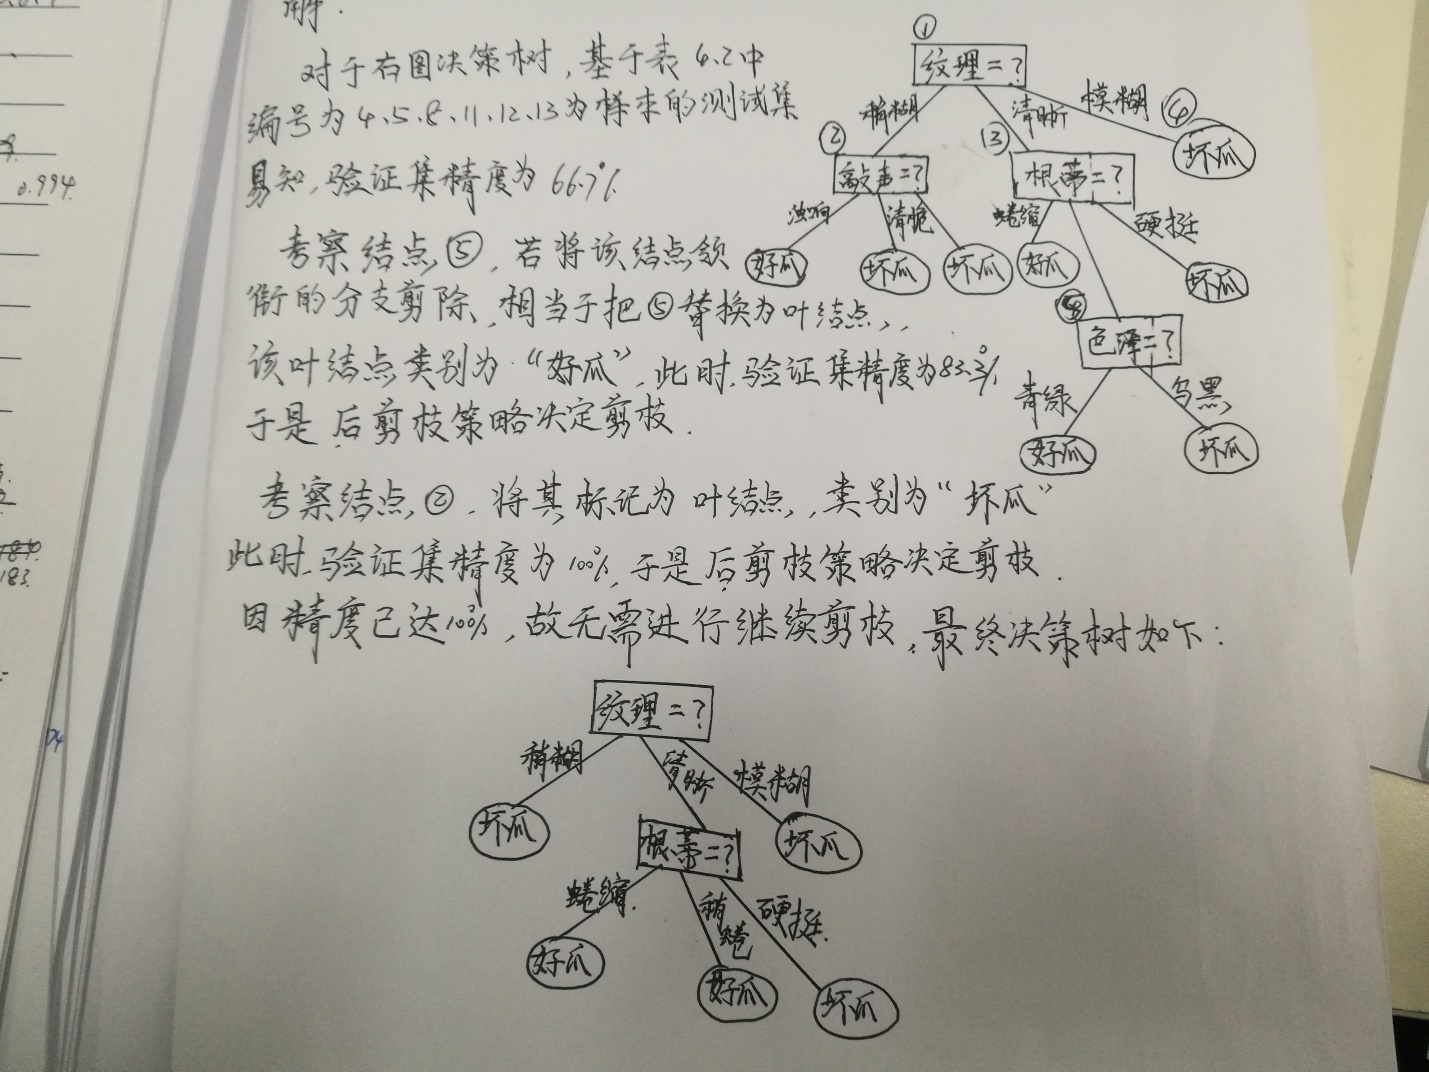 解.
对于右图决策树, 基于表4.2中
编号为4、5、8、11、12、13为样本的测试集
易知, 验证集精度为66.7%
考察结点⑤, 若将该结点领
衔的分支剪除, 相当于把⑤替换为叶结点,
该叶结点类别为“好瓜”, 此时, 验证集精度为83.3%
于是后剪枝策略决定剪枝.
考察结点②, 将其标记为叶结点, 类别为“坏瓜”
此时, 验证集精度为100%, 于是后剪枝策略决定剪枝.
因精度已达100%, 故无需进行继续剪枝, 最终决策树如下:
①
纹理=?
稍糊 清晰 模糊
② ③ ④
敲声=? 根蒂=? 坏瓜
浊响 清脆 蜷缩 硬挺
好瓜 坏瓜 坏瓜 好瓜 坏瓜
⑤
色泽=?
青绿 乌黑
好瓜 坏瓜
纹理=?
稍糊 清晰 模糊
坏瓜 根蒂=? 坏瓜
蜷缩 稍蜷 硬挺
好瓜 好瓜 坏瓜
0.994
183.